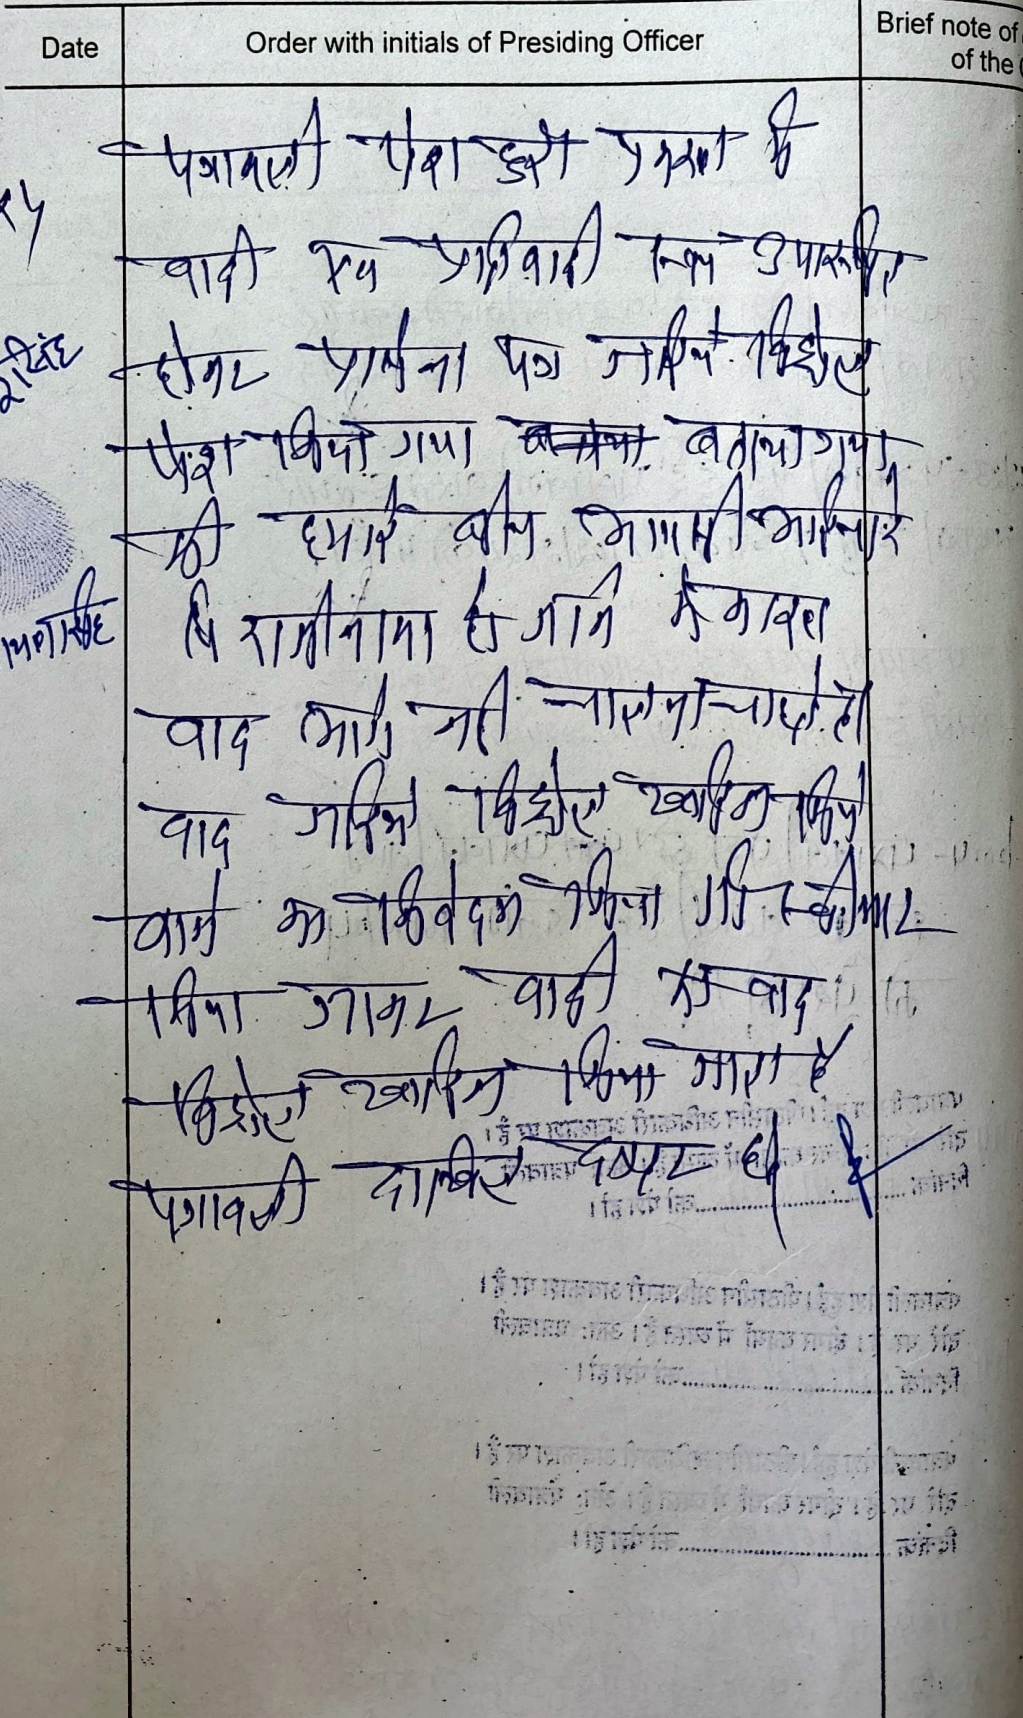 Date
Order with initials of Presiding Officer
Brief note of
of the
पत्रावली पेश हुई प्रकरण में
वादी एवं प्रतिवादी स्वयं उपस्थित
होकर प्रार्थना पत्र जरिये विड्रोल
पेश किया गया बताया गया
की हमारे बीच आपसी भाईचारे
में राजीनामा हो जाने के कारण
वाद आगे नही चालना चाहते हो
वाद जरिये विड्रोल खारिज किये
जाने का निवेदन किया गया स्वीकार
किया जाकर वादी का वाद
विड्रोल खारिज किया जाता है
पत्रावली दाखिल दफ्तर हो